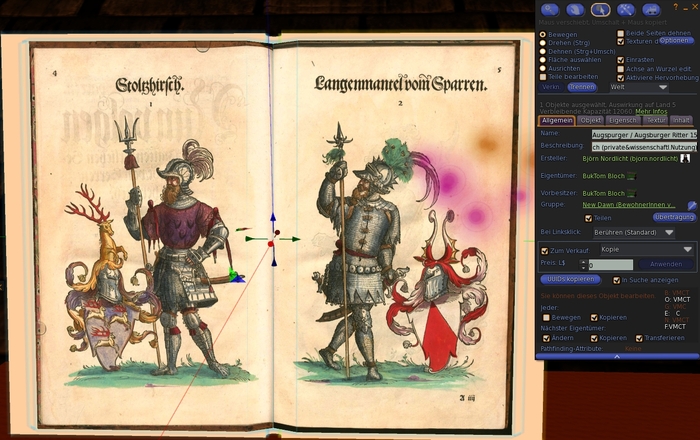 4
Stoltzhirsch.
1
5
Langenmantel vom Sparren.
2
A iij
Maus verschiebt, Umschalt + Maus kopiert
Bewegen
Drehen (Strg)
Dehnen (Strg+Umsch)
Fläche auswählen
Ausrichten
Teile bearbeiten
Beide Seiten dehnen
Texturen d
Optionen
Einrasten
Achse an Wurzel edit.
Aktiviere Hervorhebung
Verkn.
Trennen
Welt
1 Objekte ausgewählt, Auswirkung auf Land 5
Verbleibende Kapazität 12060. Mehr Infos
Allgemein
Objekt
Eigensch.
Textur
Inhalt
Name:
Augspurger / Augsburger Ritter 15
Beschreibung:
ch (private&wissenschaftl Nutzung)
Ersteller:
Björn Nordlicht (bjorn.nordlicht)
Eigentümer:
BukTom Bloch
Vorbesitzer:
BukTom Bloch
Gruppe:
New Dawn (BewohnerInnen v...
Teilen
Übertragung
Bei Linksklick:
Berühren (Standard)
Zum Verkauf:
Kopie
Preis: L$
0
Anwenden
UUIDs kopieren
In Suche anzeigen
Sie können dieses Objekt bearbeiten
B: VMCT
O: VMCT
Jeder:
G:
E: C
Bewegen
Kopieren
N: VMCT
Nächster Eigentümer:
F:VMCT
Ändern
Kopieren
Transferieren
Pathfinding-Attribute: